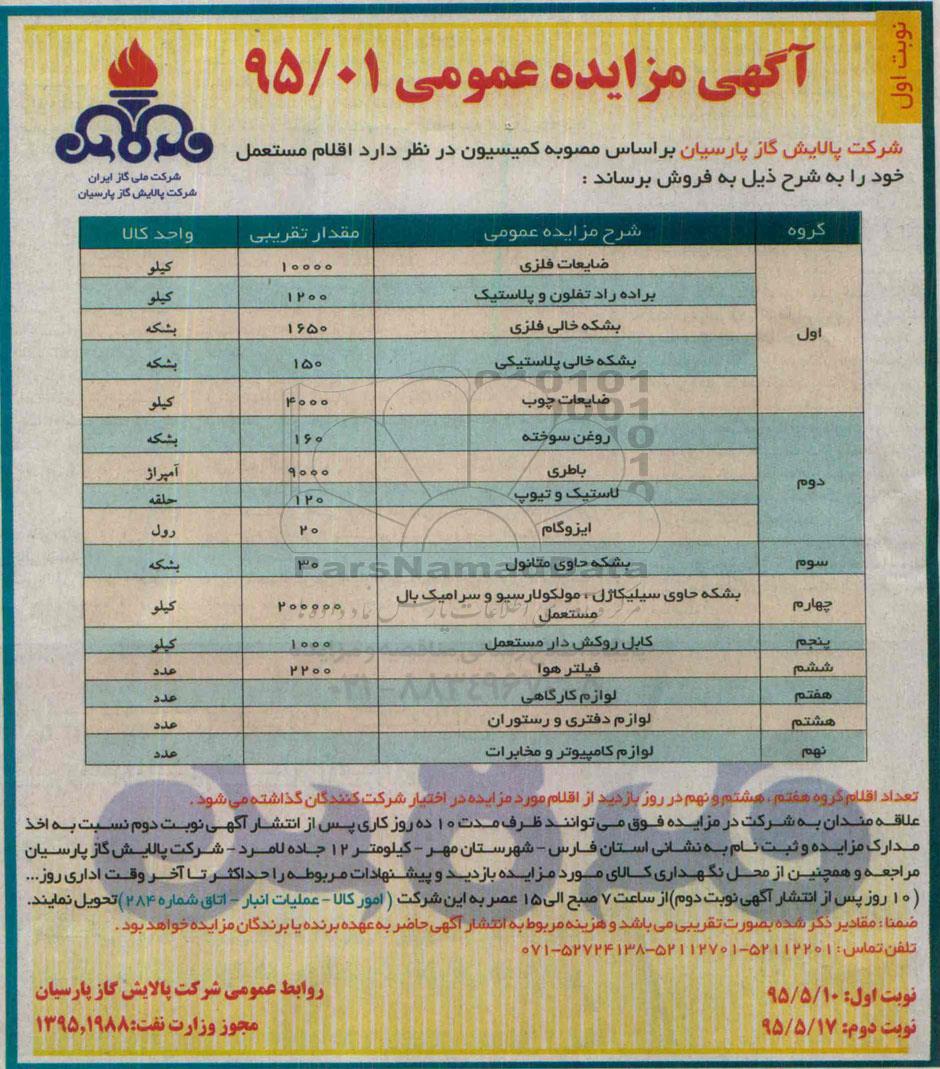 نوبت اول
آگهی مزایده عمومی ۹۵/۰۱
شرکت ملی گاز ایران
شرکت پالایش گاز پارسیان
شرکت پالایش گاز پارسیان براساس مصوبه کمیسیون در نظر دارد اقلام مستعمل
خود را به شرح ذیل به فروش برساند :
گروه شرح مزایده عمومی مقدار تقریبی واحد کالا
اول
ضایعات فلزی ۱۰۰۰۰ کیلو
براده راد تفلون و پلاستیک ۱۲۰۰ کیلو
بشکه خالی فلزی ۱۶۵۰ بشکه
بشکه خالی پلاستیکی ۱۵۰ بشکه
ضایعات چوب ۴۰۰۰ کیلو
دوم
روغن سوخته ۱۶۰ بشکه
باطری ۹۰۰۰ آمپراژ
لاستیک و تیوپ ۱۲۰ حلقه
ایزوگام ۲۰ رول
سوم بشکه حاوی متانول ۳۰ بشکه
چهارم بشکه حاوی سیلیکاژل ، مولکولارسیو و سرامیک بال
مستعمل ۲۰۰۰۰۰ کیلو
پنجم کابل روکش دار مستعمل ۱۰۰۰ کیلو
ششم فیلتر هوا ۲۲۰۰ عدد
هفتم لوازم کارگاهی عدد
هشتم لوازم دفتری و رستوران عدد
نهم لوازم کامپیوتر و مخابرات عدد
ParsNamadData
تعداد اقلام گروه هفتم ، هشتم و نهم در روز بازدید از اقلام مورد مزایده در اختیار شرکت کنندگان گذاشته می شود .
علاقه مندان به شرکت در مزایده فوق می توانند ظرف مدت ۱۰ ده روز کاری پس از انتشار آگهی نوبت دوم نسبت به اخذ
مدارک مزایده و ثبت نام به نشانی استان فارس - شهرستان مهر - کیلومتر ۱۲ جاده لامرد - شرکت پالایش گاز پارسیان
مراجعه و همچنین از محل نگهداری کالای مورد مزایده بازدید و پیشنهادات مربوطه را حداکثر تا آخر وقت اداری روز...
( ۱۰ روز پس از انتشار آگهی نوبت دوم) از ساعت ۷ صبح الی ۱۵ عصر به این شرکت ( امور کالا - عملیات انبار - اتاق شماره ۲۸۴) تحویل نمایند.
ضمنا : مقادیر ذکر شده بصورت تقریبی می باشد و هزینه مربوط به انتشار آگهی حاضر به عهده برنده یا برندگان مزایده خواهد بود .
تلفن تماس : ۵۲۱۱۲۲۰۱-۵۲۱۱۲۷۰۱-۵۲۷۲۴۱۳۸-۰۷۱
نوبت اول: ۹۵/۵/۱۰
نوبت دوم: ۹۵/۵/۱۷
روابط عمومی شرکت پالایش گاز پارسیان
مجوز وزارت نفت:۱۳۹۵,۱۹۸۸